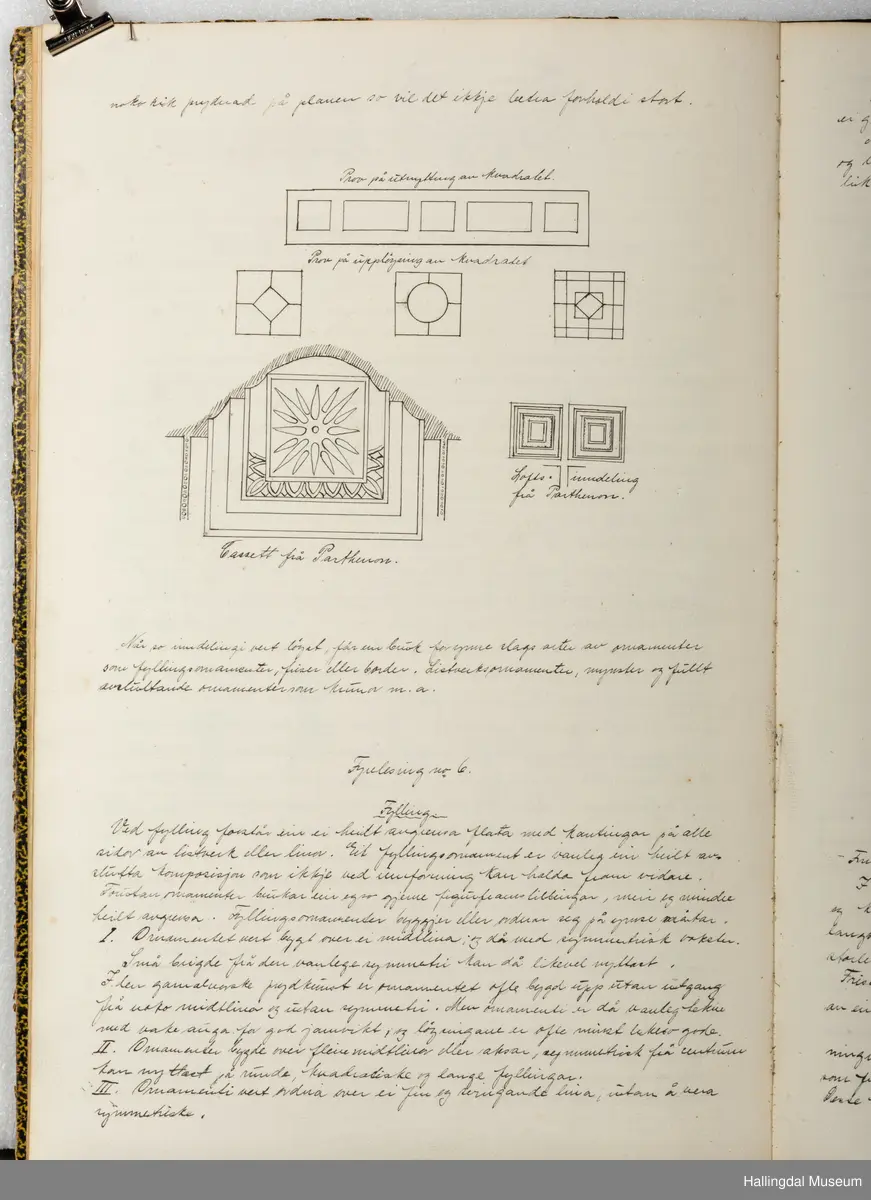 noko rik prydnad på planen so vil det ikkje betra forholdi stort.
Prov på utnytting av kvadratet.
Prov på upplöysing av kvadratet
Lofts-inndeling
frå Parthenon.
Cassett frå Parthenon.
Når so inndelingi vert löyst, får ein bruk for ymse slags arter av ornamenter
som fyllingsornamenter, friser eller border. Listverksornamenter, mynster og fullt
avsluttande ornamenter som kruner m.a.
Fyrelesing no 6.
Fylling
Ved fylling forstår ein ei heilt avgrensa flata med kantingar på alle
sidor av listverk eller linor. Eit fyllingsornament er vanleg ein heilt av-
slutta komposisjon som ikkje ved innforming kan halda fram vidare.
Foruten ornamenter brukar ein egso gjerne figurframstillingar, meir eg mindre
heilt avgrensa. Fyllingsornamenter byggjer eller ordnar seg på ymse måtar.
I. Ornamentet vert bygt over ei midtlina, og då med symmetrisk vokster.
Små brigde frå den vanlege symmetri kan då likevel nyttast.
I den gamalnorske prydkunst er ornamentet ofte bygd upp utan utgang
frå noko midtlina og utan symmetri. Men ornamenti er då vanleg tekne
med vake auga for god jamvikt, og löysingane er ofte minst likeso gode.
II. Ornamenter bygde over fleire midtlinor eller aksar, symmetrisk frå centrum
kan nyttast på runde, kvadratiske og lange fyllingar.
III. Ornamenti vert ordna over ei fin og svingande lina, utan å vera
symmetriske.
ei g
og
Fri
og
langs
Fris
av ein
ninge
som f
Desse
Hallingdal Museum